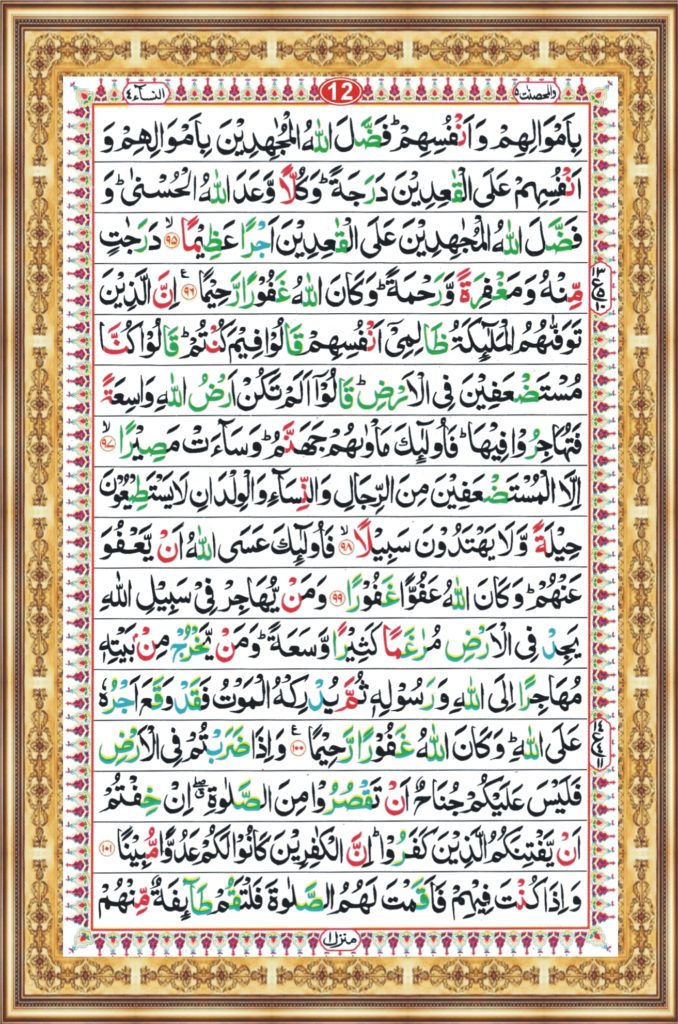 والمحصنت ٥ 12 النساء ٤
بِاَمْوَالِهِمْ وَ اَنْفُسِهِمْ ؕ فَضَّلَ اللّٰهُ الْمُجٰهِدِيْنَ بِاَمْوَالِهِمْ وَ
اَنْفُسِهِمْ عَلَى الْقٰعِدِيْنَ دَرَجَةً ؕ وَكُلًّا وَّعَدَ اللّٰهُ الْحُسْنٰى ؕ وَ
فَضَّلَ اللّٰهُ الْمُجٰهِدِيْنَ عَلَى الْقٰعِدِيْنَ اَجْرًا عَظِيْمًا ۙ‏ ﴿۹۵﴾ دَرَجٰتٍ
مِّنْهُ وَمَغْفِرَةً وَّرَحْمَةً ؕ وَكَانَ اللّٰهُ غَفُوْرًا رَّحِيْمًا ﴿۹۶﴾ ع اِنَّ الَّذِيْنَ
تَوَفّٰىهُمُ الْمَلٰٓئِكَةُ ظَالِمِىْۤ اَنْفُسِهِمْ قَالُوْا فِيْمَ كُنْتُمْ ؕ قَالُوْا كُنَّا
مُسْتَضْعَفِيْنَ فِى الْاَرْضِ ؕ قَالُوْۤا اَلَمْ تَكُنْ اَرْضُ اللّٰهِ وَاسِعَةً
فَتُهَاجِرُوْا فِيْهَا ؕ فَاُولٰٓئِكَ مَاْوٰىهُمْ جَهَنَّمُ ؕ وَسَآءَتْ مَصِيْرًا ۙ ﴿۹۷﴾
اِلَّا الْمُسْتَضْعَفِيْنَ مِنَ الرِّجَالِ وَالنِّسَآءِ وَالْوِلْدَانِ لَا يَسْتَطِيْعُوْنَ
حِيْلَةً وَّلَا يَهْتَدُوْنَ سَبِيْلًا ۙ ﴿۹۸﴾ فَاُولٰٓئِكَ عَسَى اللّٰهُ اَنْ يَّعْفُوَ
عَنْهُمْ ؕ وَكَانَ اللّٰهُ عَفُوًّا غَفُوْرًا ﴿۹۹﴾ وَمَنْ يُّهَاجِرْ فِىْ سَبِيْلِ اللّٰهِ
يَجِدْ فِى الْاَرْضِ مُرٰغَمًا كَثِيْرًا وَّسَعَةً ؕ وَمَنْ يَّخْرُجْ مِنْۢ بَيْتِهٖ
مُهَاجِرًا اِلَى اللّٰهِ وَرَسُوْلِهٖ ثُمَّ يُدْرِكْهُ الْمَوْتُ فَقَدْ وَقَعَ اَجْرُهٗ
عَلَى اللّٰهِ ؕ وَكَانَ اللّٰهُ غَفُوْرًا رَّحِيْمًا ﴿۱۰۰﴾ ع وَاِذَا ضَرَبْتُمْ فِى الْاَرْضِ
فَلَيْسَ عَلَيْكُمْ جُنَاحٌ اَنْ تَقْصُرُوْا مِنَ الصَّلٰوةِ ۖق اِنْ خِفْتُمْ
اَنْ يَّفْتِنَكُمُ الَّذِيْنَ كَفَرُوْا ؕ اِنَّ الْكٰفِرِيْنَ كَانُوْا لَكُمْ عَدُوًّا مُّبِيْنًا ﴿۱۰۱﴾
وَاِذَا كُنْتَ فِيْهِمْ فَاَقَمْتَ لَهُمُ الصَّلٰوةَ فَلْتَقُمْ طَآئِفَةٌ مِّنْهُمْ
منزل ۱